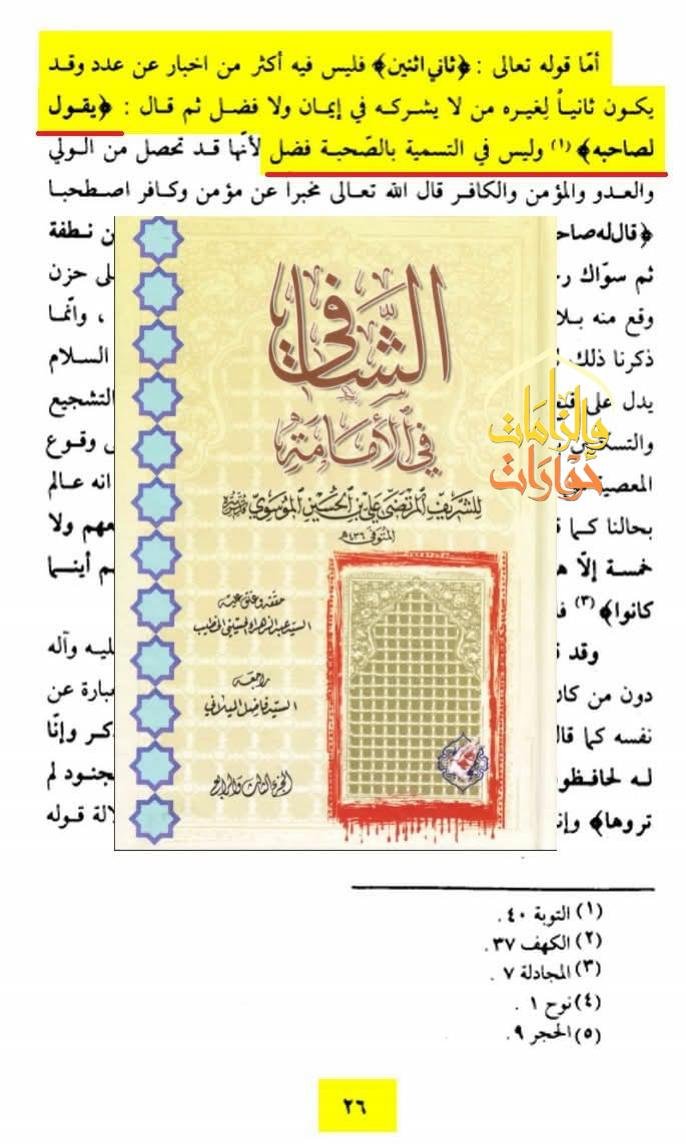 أمّا قوله تعالى : ﴿ثاني اثنين﴾ فليس فيه أكثر من اخبار عن عدد وقد
يكون ثانياً لغيره من لا يشركه في إيمان ولا فضل ثم قال : ﴿يقول
لصاحبه﴾ (١) وليس في التسمية بالصّحبة فضل لأنّها قد تحصل من الولي
والعدو والمؤمن والكافر قال الله تعالى مخبراً عن مؤمن وكافر اصطحبا
﴿قال له صاحـ
ن نطفة
ثم سوّاك ر
لى حزن
وقع منه بلا
، وانّما
ذكرنا ذلك
السلام
يدل على
التشجيع
وقوع
المعصية
انه عالم
بحالنا كما
ـعهم ولا
خمسة إلّا هـ
ـم أينما
كانوا﴾ (٣)
وقد
ـليه وآله
دون من كان
ـبارة عن
نفسه كما قال
ـكر وإنّا
له لحافظو
ـجنود لم
تروها﴾
ـلالة قوله
الشّافي
في الأمامة
للشريف المرتضى علي بن الحسين الموسوي
المتوفى ٤٣٦ هـ
حققه وعلق عليه
السيد عبد الزهراء الحسيني الخطيب
راجعه
السيد فاضل الميلاني
الجزء الثالث والرابع
حوارات
وإلزامات
(١) التوبة ٤٠ .
(٢) الكهف ٣٧ .
(٣) المجادلة ٧ .
(٤) نوح ١ .
(٥) الحجر ٩ .
٢٦